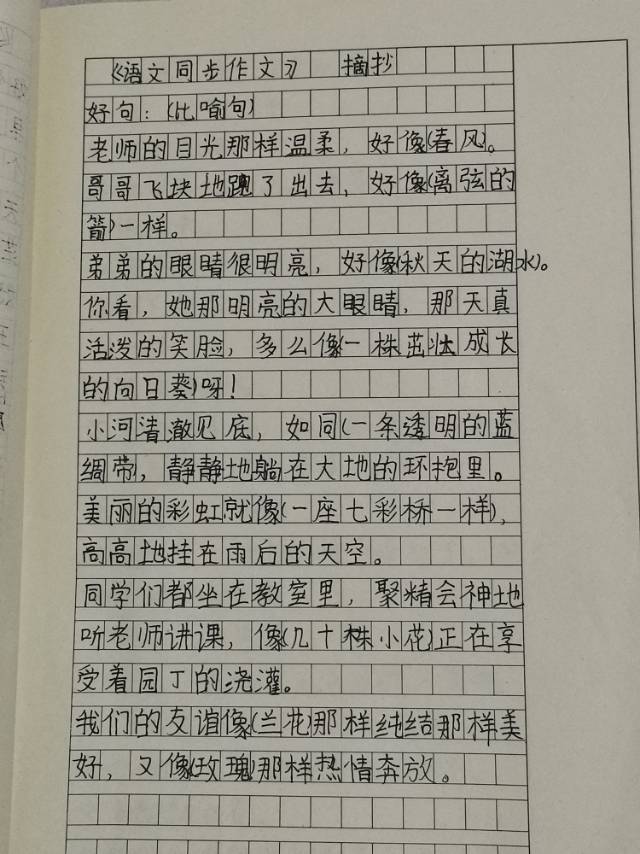 《语文同步作文》 摘抄
好句：（比喻句）
老师的目光那样温柔，好像（春风）。
哥哥飞块地跑了出去，好像（离弦的
箭）一样。
弟弟的眼睛很明亮，好像（秋天的湖水）。
你看，她那明亮的大眼睛，那天真
活泼的笑脸，多么像（一株茁壮成长
的向日葵）呀！
小河清澈见底，如同（一条透明的蓝
绸带，静静地躺在大地的环抱里。
美丽的彩虹就像（一座七彩桥一样），
高高地挂在雨后的天空。
同学们都坐在教室里，聚精会神地
听老师讲课，像（几十株小花）正在享
受着园丁的浇灌。
我们的友谊像（兰花）那样纯结那样美
好，又像（玫瑰）那样热情奔放。